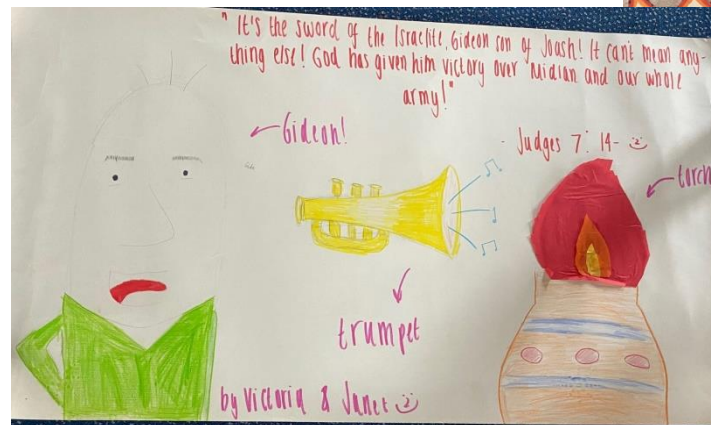 " It's the sword of the Israelite, Gideon son of Joash! It can't mean any-
thing else! God has given him victory over Midian and our whole
army!"
- Judges 7:14-
Gideon!
torch
trumpet
by Victoria & Janet